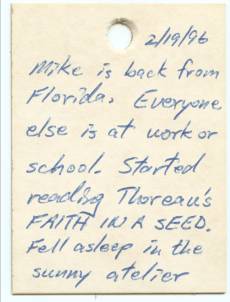 2/19/96
Mike is back from
Florida. Everyone
else is at work or
school. Started
reading Thoreau's
FAITH IN A SEED.
Fell asleep in the
sunny atelier